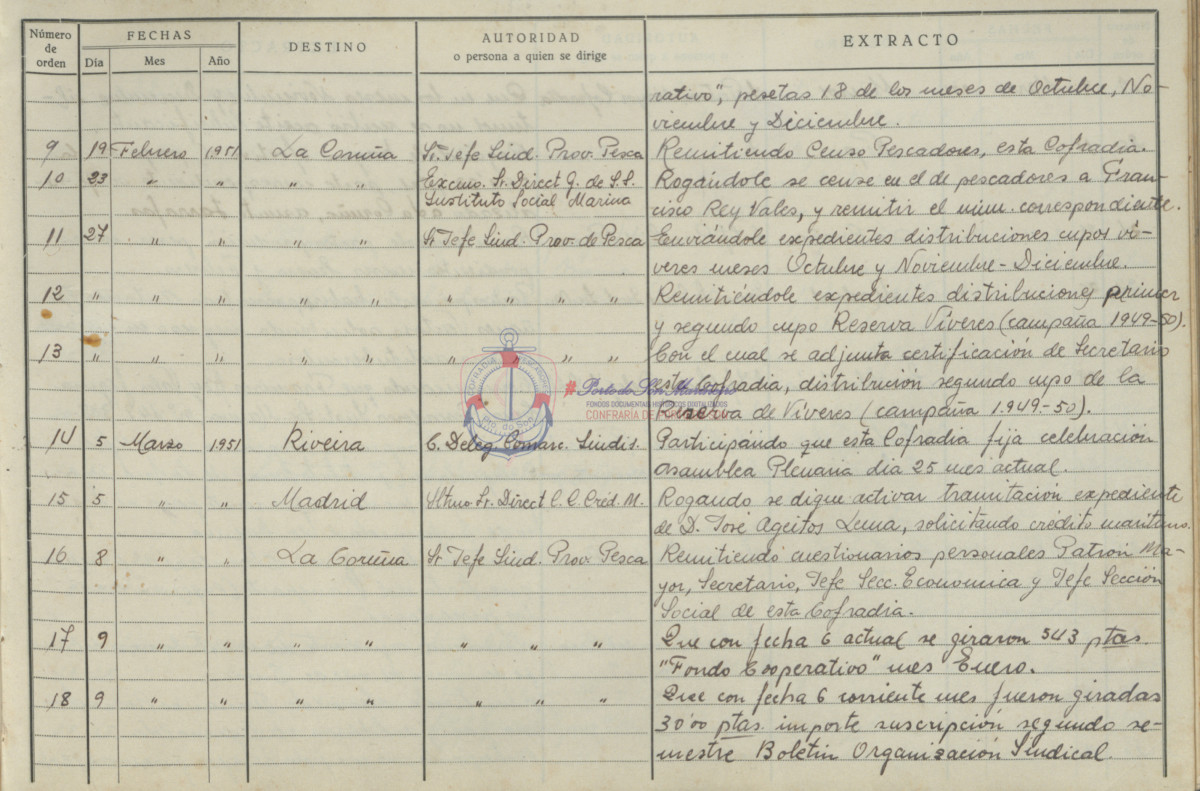 Número de orden
FECHAS
Día Mes Año
DESTINO
AUTORIDAD
o persona a quien se dirige
EXTRACTO
rativo", pesetas 18 de los meses de Octubre, No-
viembre y Diciembre.
9 19 Febrero 1951 La Coruña Sr. Jefe Sind. Prov. Pesca Remitiendo Censo Pescadores, esta Cofradia.
10 23 " " " " Excmo. Sr. Direct G. de S.S. Rogándole se cense en el de pescadores a Fran-
Instituto Social Marina cisco Rey Vales, y remitir el núm. correspondiente.
11 27 " " " " Sr Jefe Sind. Prov. de Pesca Enviándole expedientes distribuciones cupos ví-
veres meses Octubre y Noviembre-Diciembre.
12 " " " " " " " " " Remitiéndole expedientes distribuciones primer
y segundo cupo Reserva Víveres (campaña 1949-50).
13 " " " " " " " " " Con el cual se adjunta certificación de Secretario
esta Cofradia, distribución segundo cupo de la
Reserva de Víveres (campaña 1.949.-50).
14 5 Marzo 1951 Riveira C. Deleg. Comarc. Sindis. Participándo que esta Cofradia fija celebración
asamblea Plenaria dia 25 mes actual.
15 5 " " Madrid Iltmo Sr. Direct C. C. Créd. M. Rogando se digne activar tramitación expediente
de D. José Ageitos Lema, solicitando crédito maritimo.
16 8 " " La Coruña Sr Jefe Sind. Prov. Pesca Remitiendo cuestionarios personales Patrón Ma-
yor, Secretario, Jefe Secc. Economica y Jefe Sección
Social de esta Cofradia.
17 9 " " " " " " " Que con fecha 6 actual se giraron 543 ptas.
"Fondo Cooperativo" mes Enero.
18 9 " " " " " " " Que con fecha 6 corriente mes fueron giradas
30'00 ptas. importe suscripción segundo se-
mestre Boletin Organización Sindical.
COFRADIA PESCADORES
Pto. do Son
#Porto do Son Mariñeiro
FONDOS DOCUMENTAIS HISTÓRICOS DIXITALIZADOS
CONFRARÍA DE